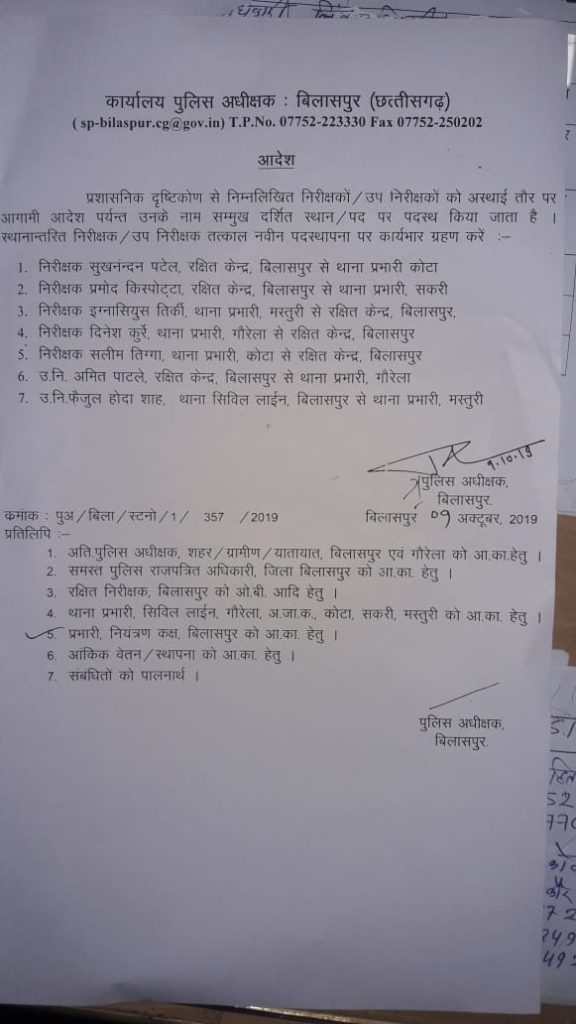 कार्यालय पुलिस अधीक्षक : बिलासपुर (छत्तीसगढ़)
( sp-bilaspur.cg@gov.in) T.P.No. 07752-223330 Fax 07752-250202
आदेश
प्रशासनिक दृष्टिकोण से निम्नलिखित निरीक्षकों/उप निरीक्षकों को अस्थाई तौर पर
आगामी आदेश पर्यन्त उनके नाम सम्मुख दर्शित स्थान/पद पर पदस्थ किया जाता है ।
स्थानान्तरित निरीक्षक/उप निरीक्षक तत्काल नवीन पदस्थापना पर कार्यभार ग्रहण करें :–
1. निरीक्षक सुखनंन्दन पटेल, रक्षित केन्द्र, बिलासपुर से थाना प्रभारी कोटा
2. निरीक्षक प्रमोद किस्पोट्टा, रक्षित केन्द्र, बिलासपुर से थाना प्रभारी, सकरी
3. निरीक्षक इग्नासियुस तिर्की, थाना प्रभारी, मस्तुरी से रक्षित केन्द्र, बिलासपुर,
4. निरीक्षक दिनेश कुर्रे, थाना प्रभारी, गौरेला से रक्षित केन्द्र, बिलासपुर
5. निरीक्षक सलीम तिग्गा, थाना प्रभारी, कोटा से रक्षित केन्द्र, बिलासपुर
6. उ.नि. अमित पाटले, रक्षित केन्द्र, बिलासपुर से थाना प्रभारी, गौरेला
7. उ.नि.फैजुल होदा शाह, थाना सिविल लाईन, बिलासपुर से थाना प्रभारी, मस्तुरी
9.10.19
पुलिस अधीक्षक,
बिलासपुर.
कमांक : पुअ/बिला/स्टनो/1/ 357 /2019 बिलासपुर 09 अक्टूबर, 2019
प्रतिलिपि :–
1. अति.पुलिस अधीक्षक, शहर/ग्रामीण/यातायात, बिलासपुर एवं गौरेला को आ.का.हेतु ।
2. समस्त पुलिस राजपत्रित अधिकारी, जिला बिलासपुर को आ.का. हेतु ।
3. रक्षित निरीक्षक, बिलासपुर को ओ.बी. आदि हेतु ।
4. थाना प्रभारी, सिविल लाईन, गौरेला, अ.जा.क., कोटा, सकरी, मस्तुरी को आ.का. हेतु ।
5. प्रभारी, नियंत्रण कक्ष, बिलासपुर को आ.का. हेतु ।
6. आंकिक वेतन/स्थापना को आ.का. हेतु ।
7. संबंधितों को पालनार्थ ।
पुलिस अधीक्षक,
बिलासपुर.
52
770
और
72
249
492